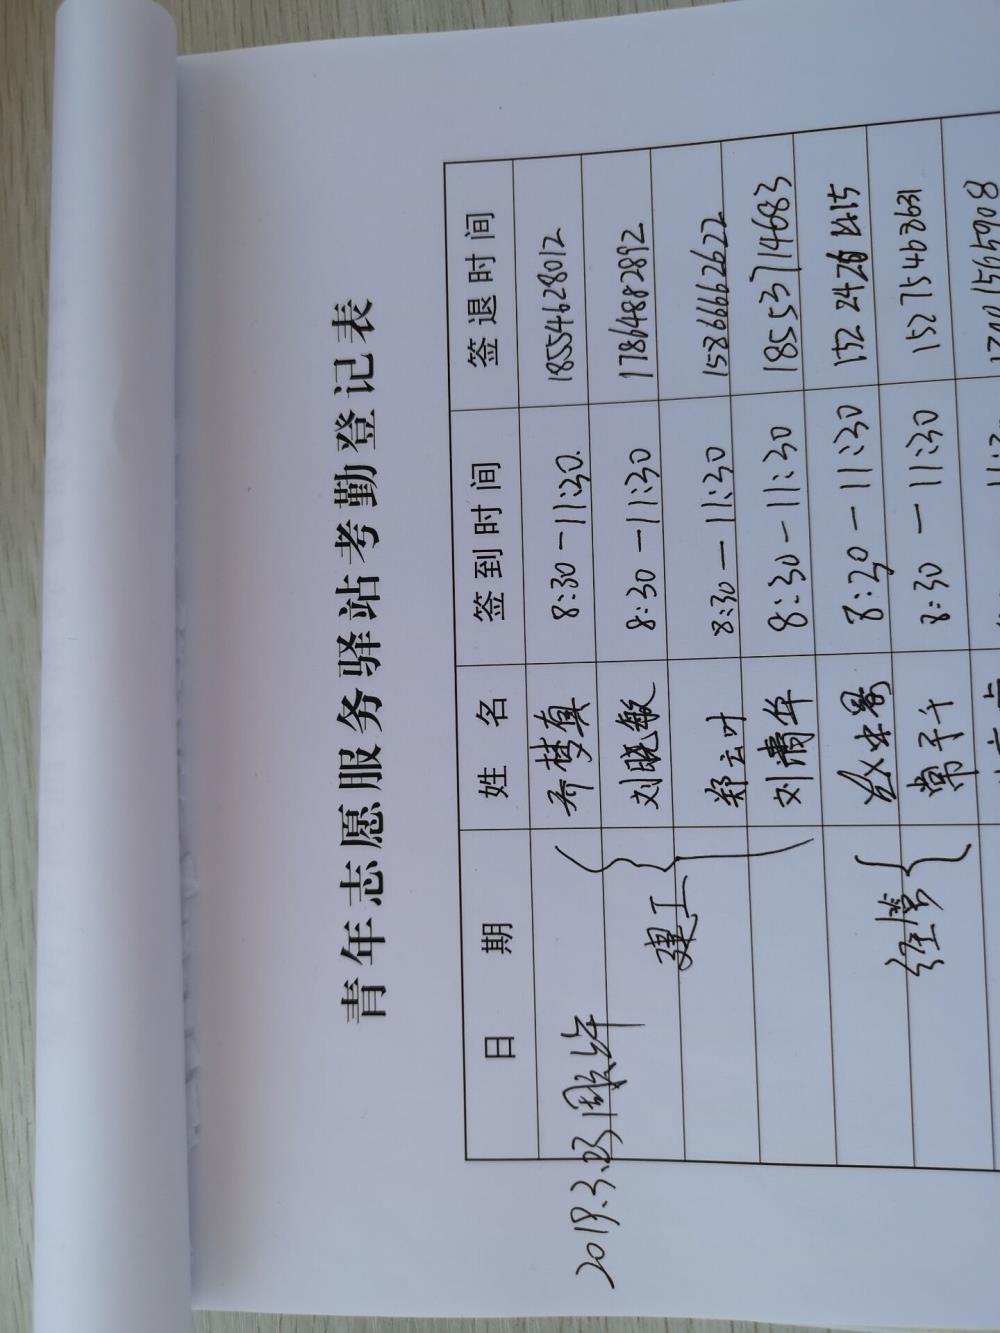 青年志愿服务驿站考勤登记表
日 期 姓 名 签到时间 签退时间
2019.3.23 周六上午
建工
乔梦真 8:30-11:30. 18554628012
刘晓敏 8:30-11:30 17864882892
郑云叶 8:30-11:30 15866662622
刘清华 8:30-11:30 18553714683
经管
8:30-11:30
常千千 8:30-11:30 15275463631